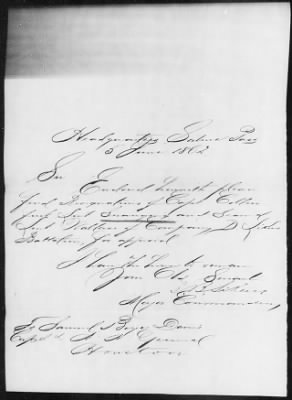 Headquarters Sabine Pass
5 June 1862
Sir Enclosed herewith please
find Resignations of Capt
first Lieut and
Lieut of Company D
Battalion, for approval
I have the honor to remain
Your Obt. Servant
Major Commanding
To Samuel Boyer Davis
Capt & A A General
Houston